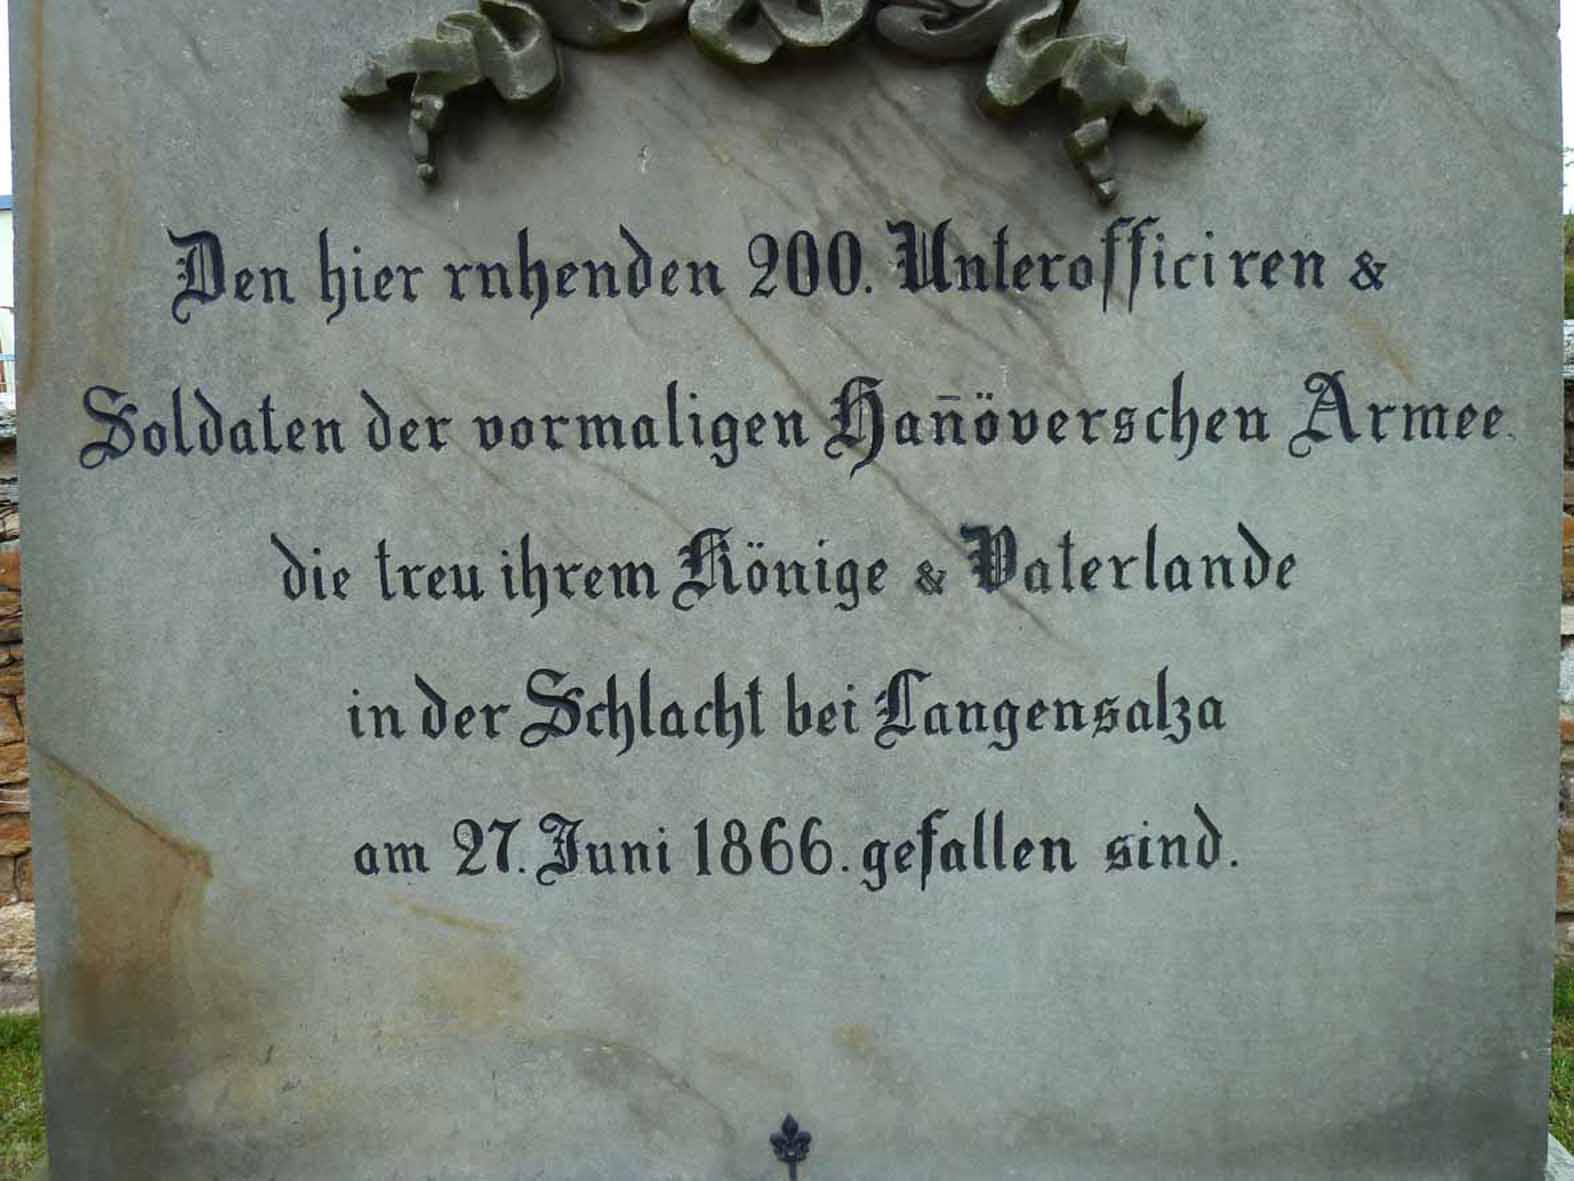 Den hier rnhenden 200. Unterofficiren &
Soldaten der vormaligen Han̄överschen Armee.
die treu ihrem Könige & Vaterlande
in der Schlacht bei Langensalza
am 27. Juni 1866. gefallen sind.